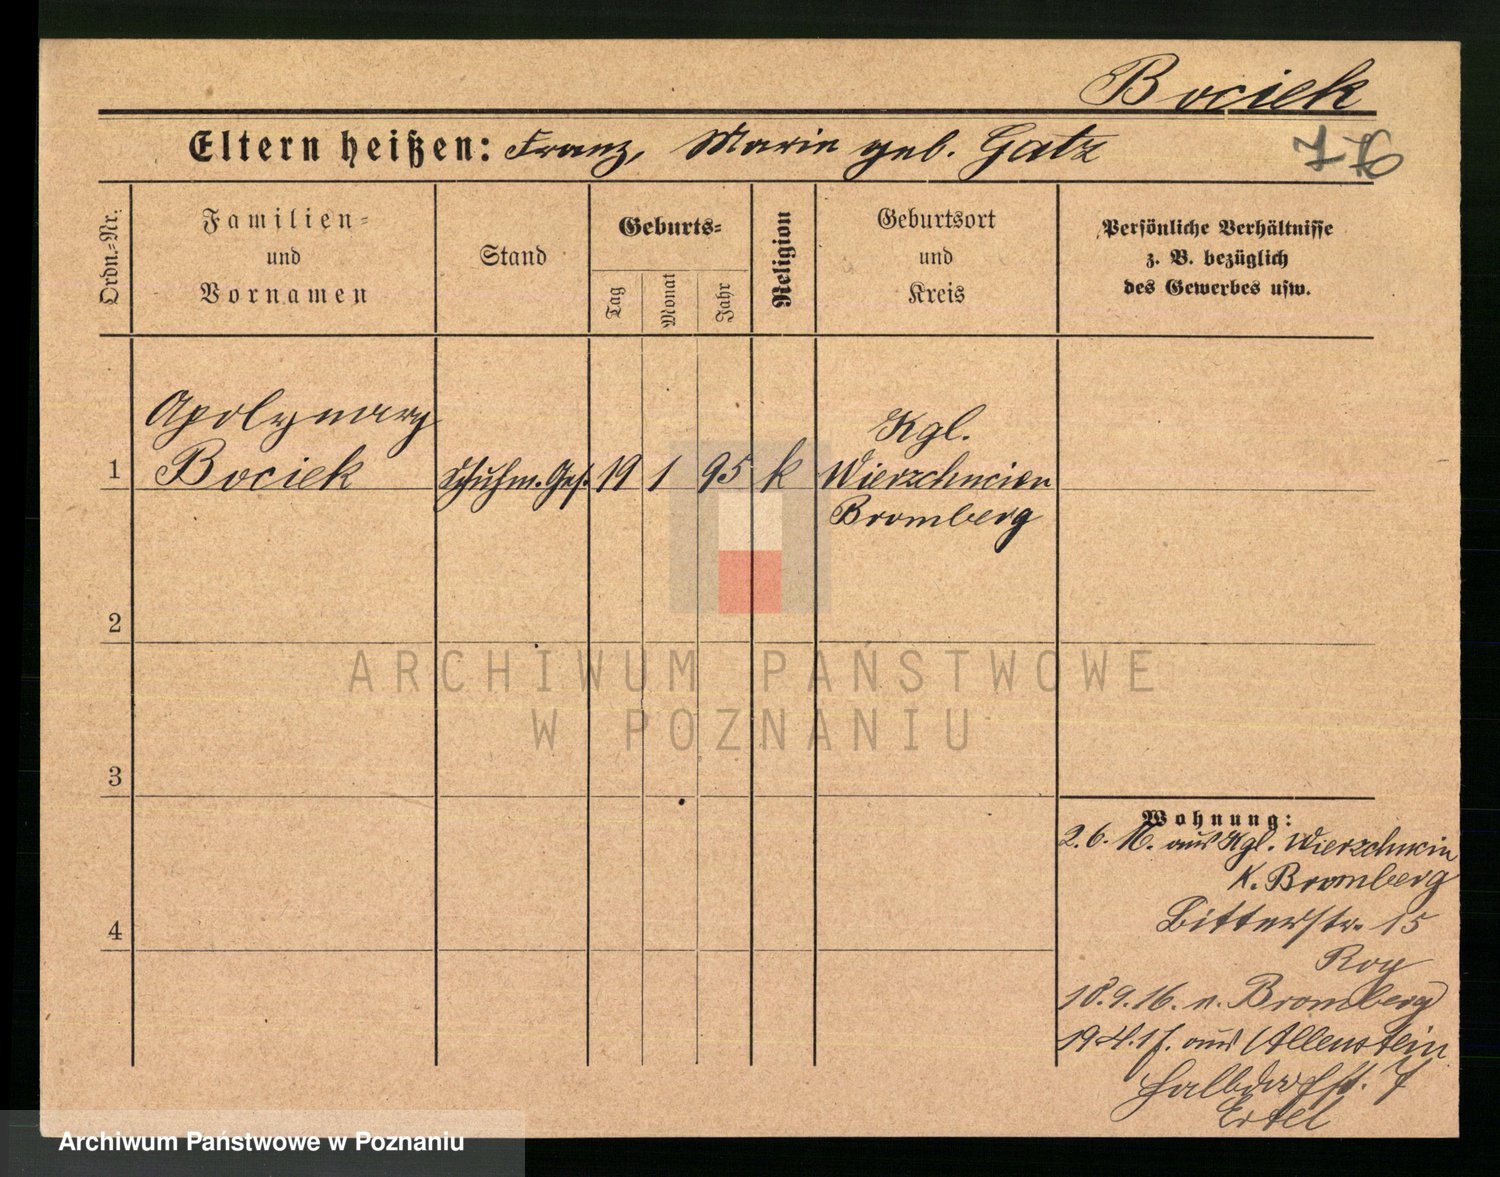 Bociek
Eltern heißen: Franz, Marie geb. Gatz
776
Ordn.=Nr.
Familien=
und
Vornamen
Stand
Geburts=
Tag
Monat
Jahr
Religion
Geburtsort
und
Kreis
Persönliche Verhältnisse
z. B. bezüglich
des Gewerbes usw.
Apolynary
Kgl.
1 Bociek Schuhm. Ges. 19 1 95 k Wierzchucien
Bromberg
2
ARCHIWUM PAŃSTWOWE
W POZNANIU
3
Wohnung:
2.6.16. aus Kgl. Wierzchucin
K. Bromberg
4
Bitterstr. 15
Roy
18.9.16. n. Bromberg
19.4.17. aus Allenstein
Halbdorfst. 7
Ertel
Archiwum Państwowe w Poznaniu